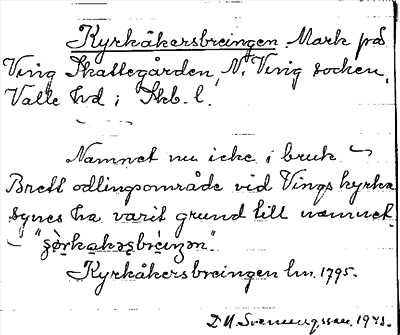 Kyrkåkersbreingen. Mark på
Ving Skattegården, N. Ving socken,
Valle hd; Skb. l.
Namnet nu icke i bruk
Brett odlingsområde vid Vings kyrka
synes ha varit grund till namnet
Kyrkåkersbreingen lm. 1795.
D. N. 1943.